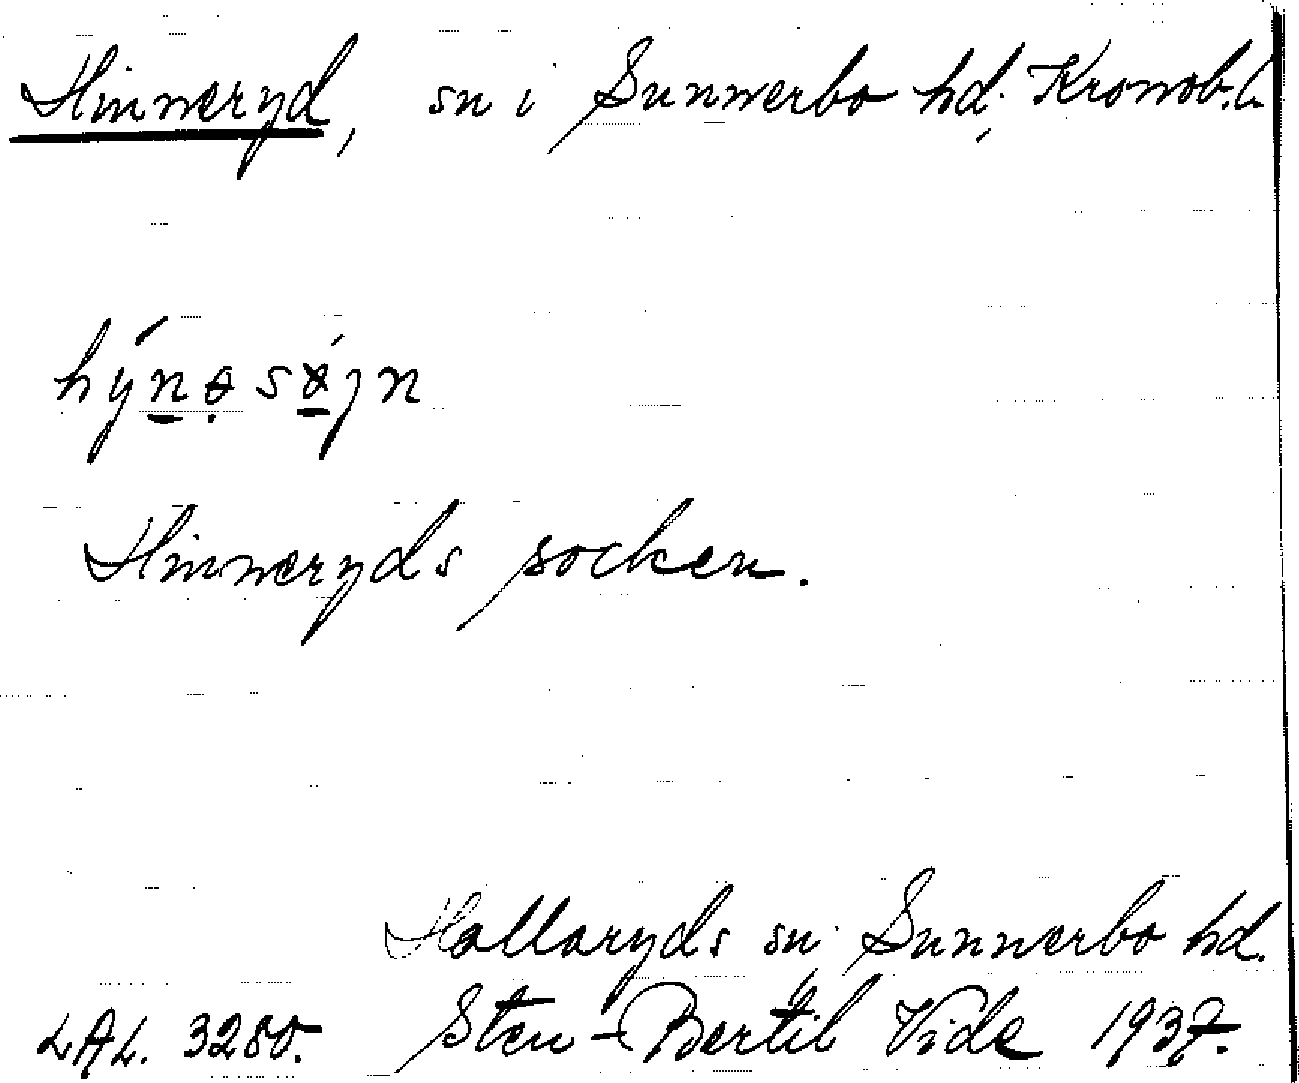 Hinneryd, sn i Sunnerbo hd, Kronob. l.
Hinneryds socken.
Hallaryds sn, Sunnerbo hd.
LAL. 3280. Sten-Bertil Vide 1937.